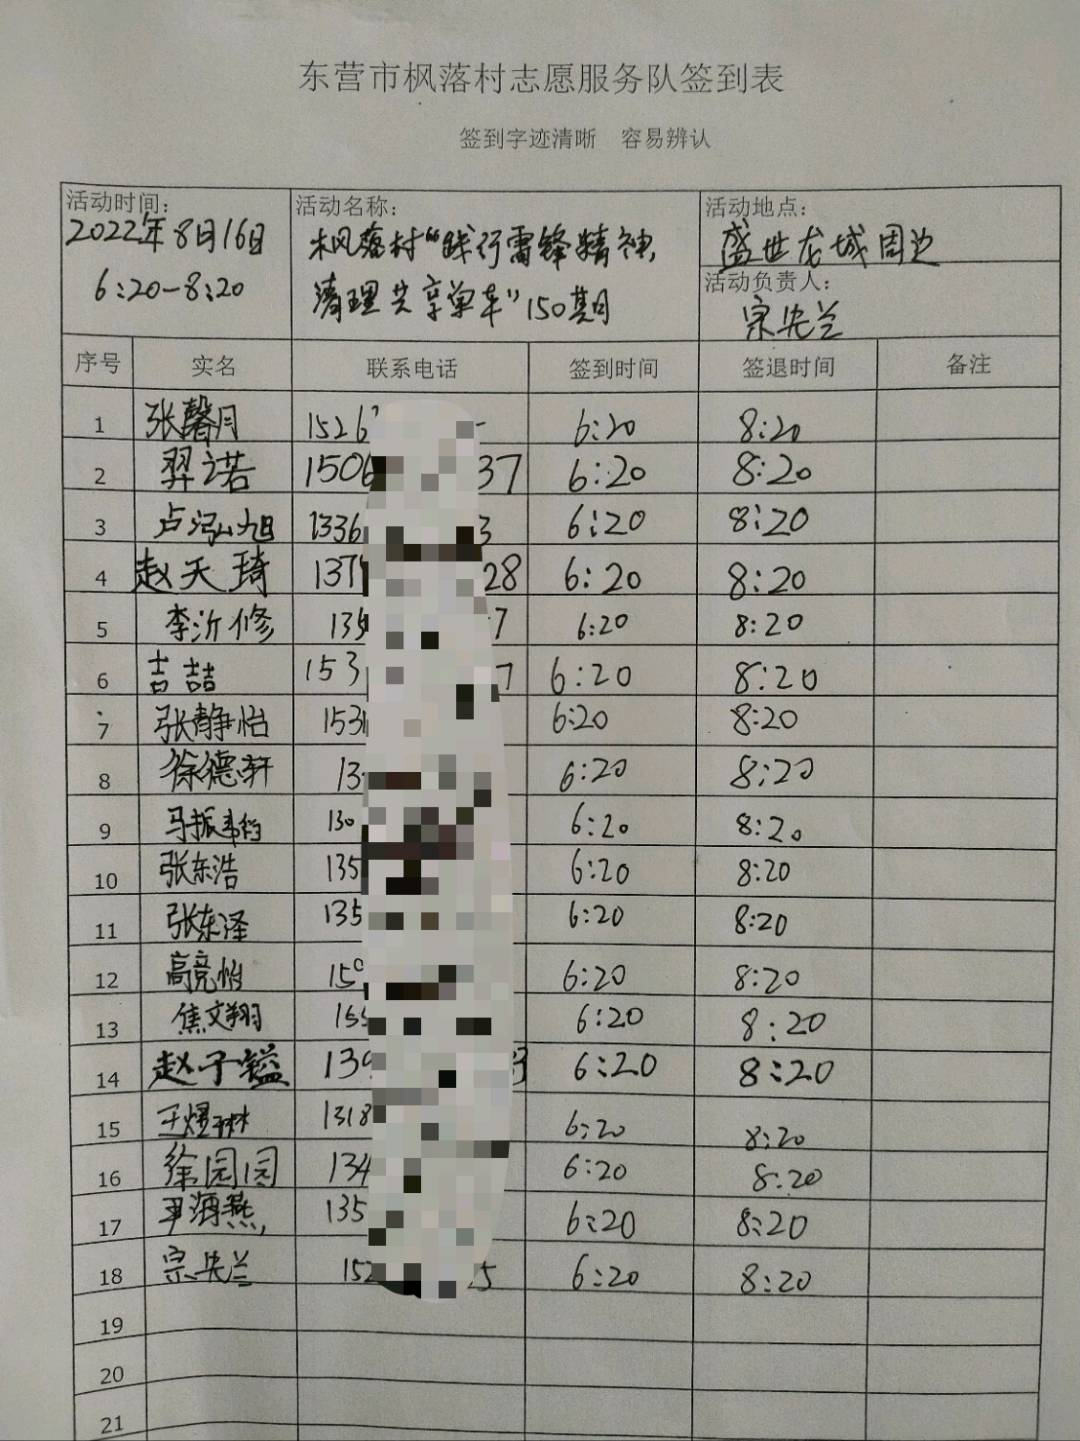 东营市枫落村志愿服务队签到表
签到字迹清晰 容易辨认
活动时间:
2022年8月16日
6:20-8:20
活动名称:
枫落村“践行雷锋精神,
清理共享单车”150期
活动地点:
盛世龙城周边
活动负责人:
宗央兰
序号 实名 联系电话 签到时间 签退时间 备注
1 张馨月 1526 6:20 8:20
2 羿诺 1506 37 6:20 8:20
3 卢泓旭 1336 3 6:20 8:20
4 赵天琦 137 28 6:20 8:20
5 李沂修 135 7 6:20 8:20
6 吉喆 153 7 6:20 8:20
7 张静怡 153 6:20 8:20
8 徐德轩 13 6:20 8:20
9 马振 130 6:20 8:20
10 张东浩 135 6:20 8:20
11 张东泽 135 6:20 8:20
12 高竞怡 15 6:20 8:20
13 焦文翔 155 6:20 8:20
14 赵子镒 139 3 6:20 8:20
15 王煜琳 1318 6:20 8:20
16 徐园园 134 6:20 8:20
17 尹海燕 135 6:20 8:20
18 宗央兰 152 5 6:20 8:20
19
20
21